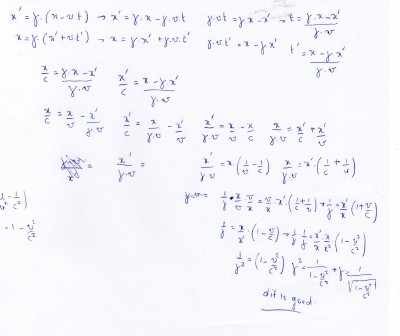 x' = γ.(x-vt) → x' = γ.x - γ.v.t   γ.v.t = γ.x - x' → t = (γ.x-x')/(γ.v)
x = γ.(x'+vt') → x = γx' + γ.v.t'   γ.v.t' = x - γx'   t' = (x-γx')/(γ.v)
x/c = (γ.x-x')/(γ.v)   x'/c = (x-γx')/(γ.v)
x/c = x/v - x'/(γ.v)   x'/c = x/(γ.v) - x'/v   x'/(γ.v) = x/v - x/c   x/(γ.v) = x'/c + x'/v
= x'/(γ.v) =   x'/(γ.v) = x.(1/v - 1/c)   x/(γ.v) = x'.(1/c + 1/v)
1/γ = x'/x (1+v/c)
1/γ = x/x'.(1-v/c) → 1/γ 1/γ = x'/x x/x' (1-v²/c²)
= 1 - v²/c²
1/γ² = (1-v²/c²)   γ² = 1/(1-v²/c²) → γ = 1/√(1-v²/c²)
dit is goed.